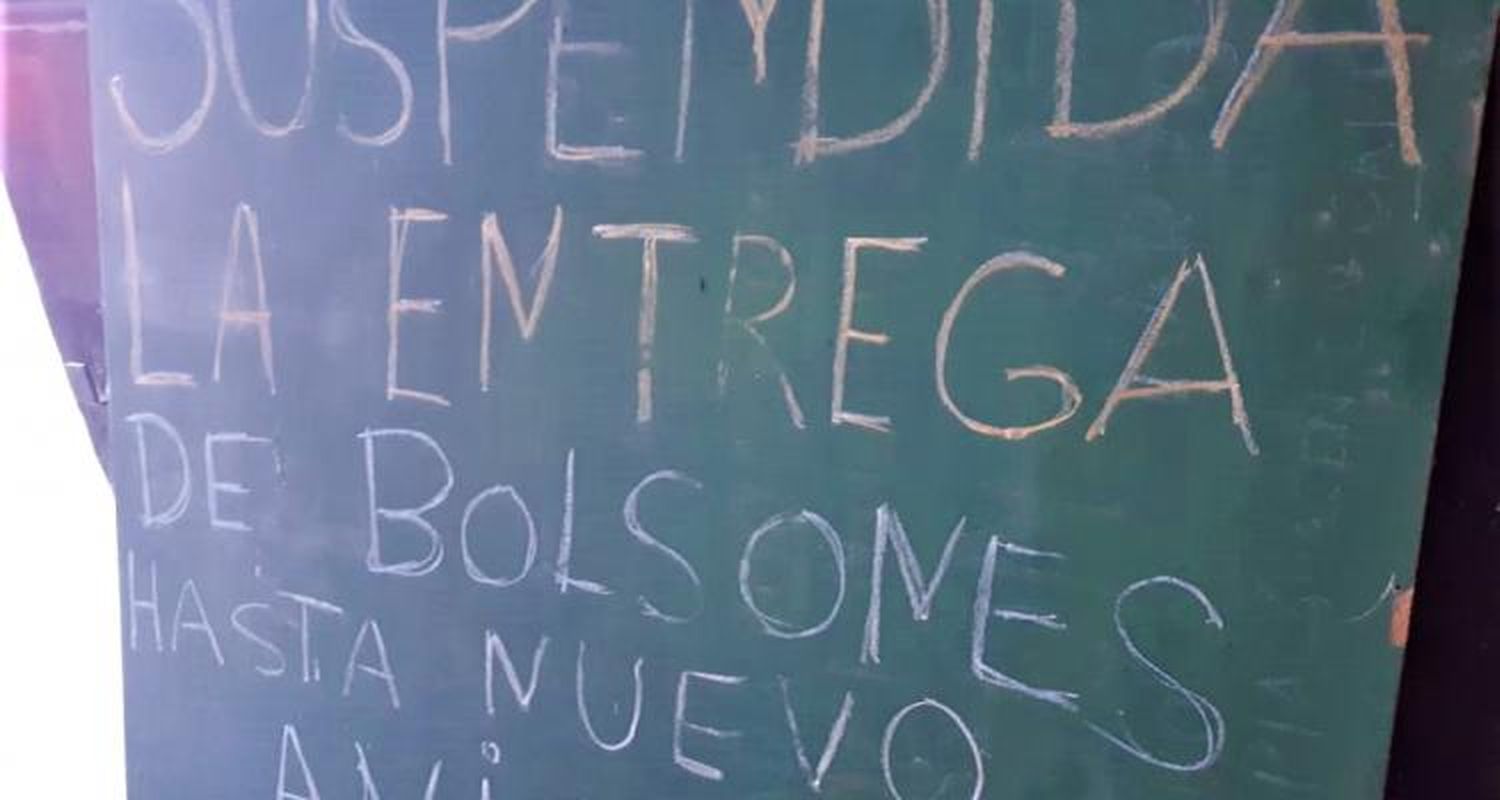 SUSPENDIDA
LA ENTREGA
DE BOLSONES
HASTA NUEVO